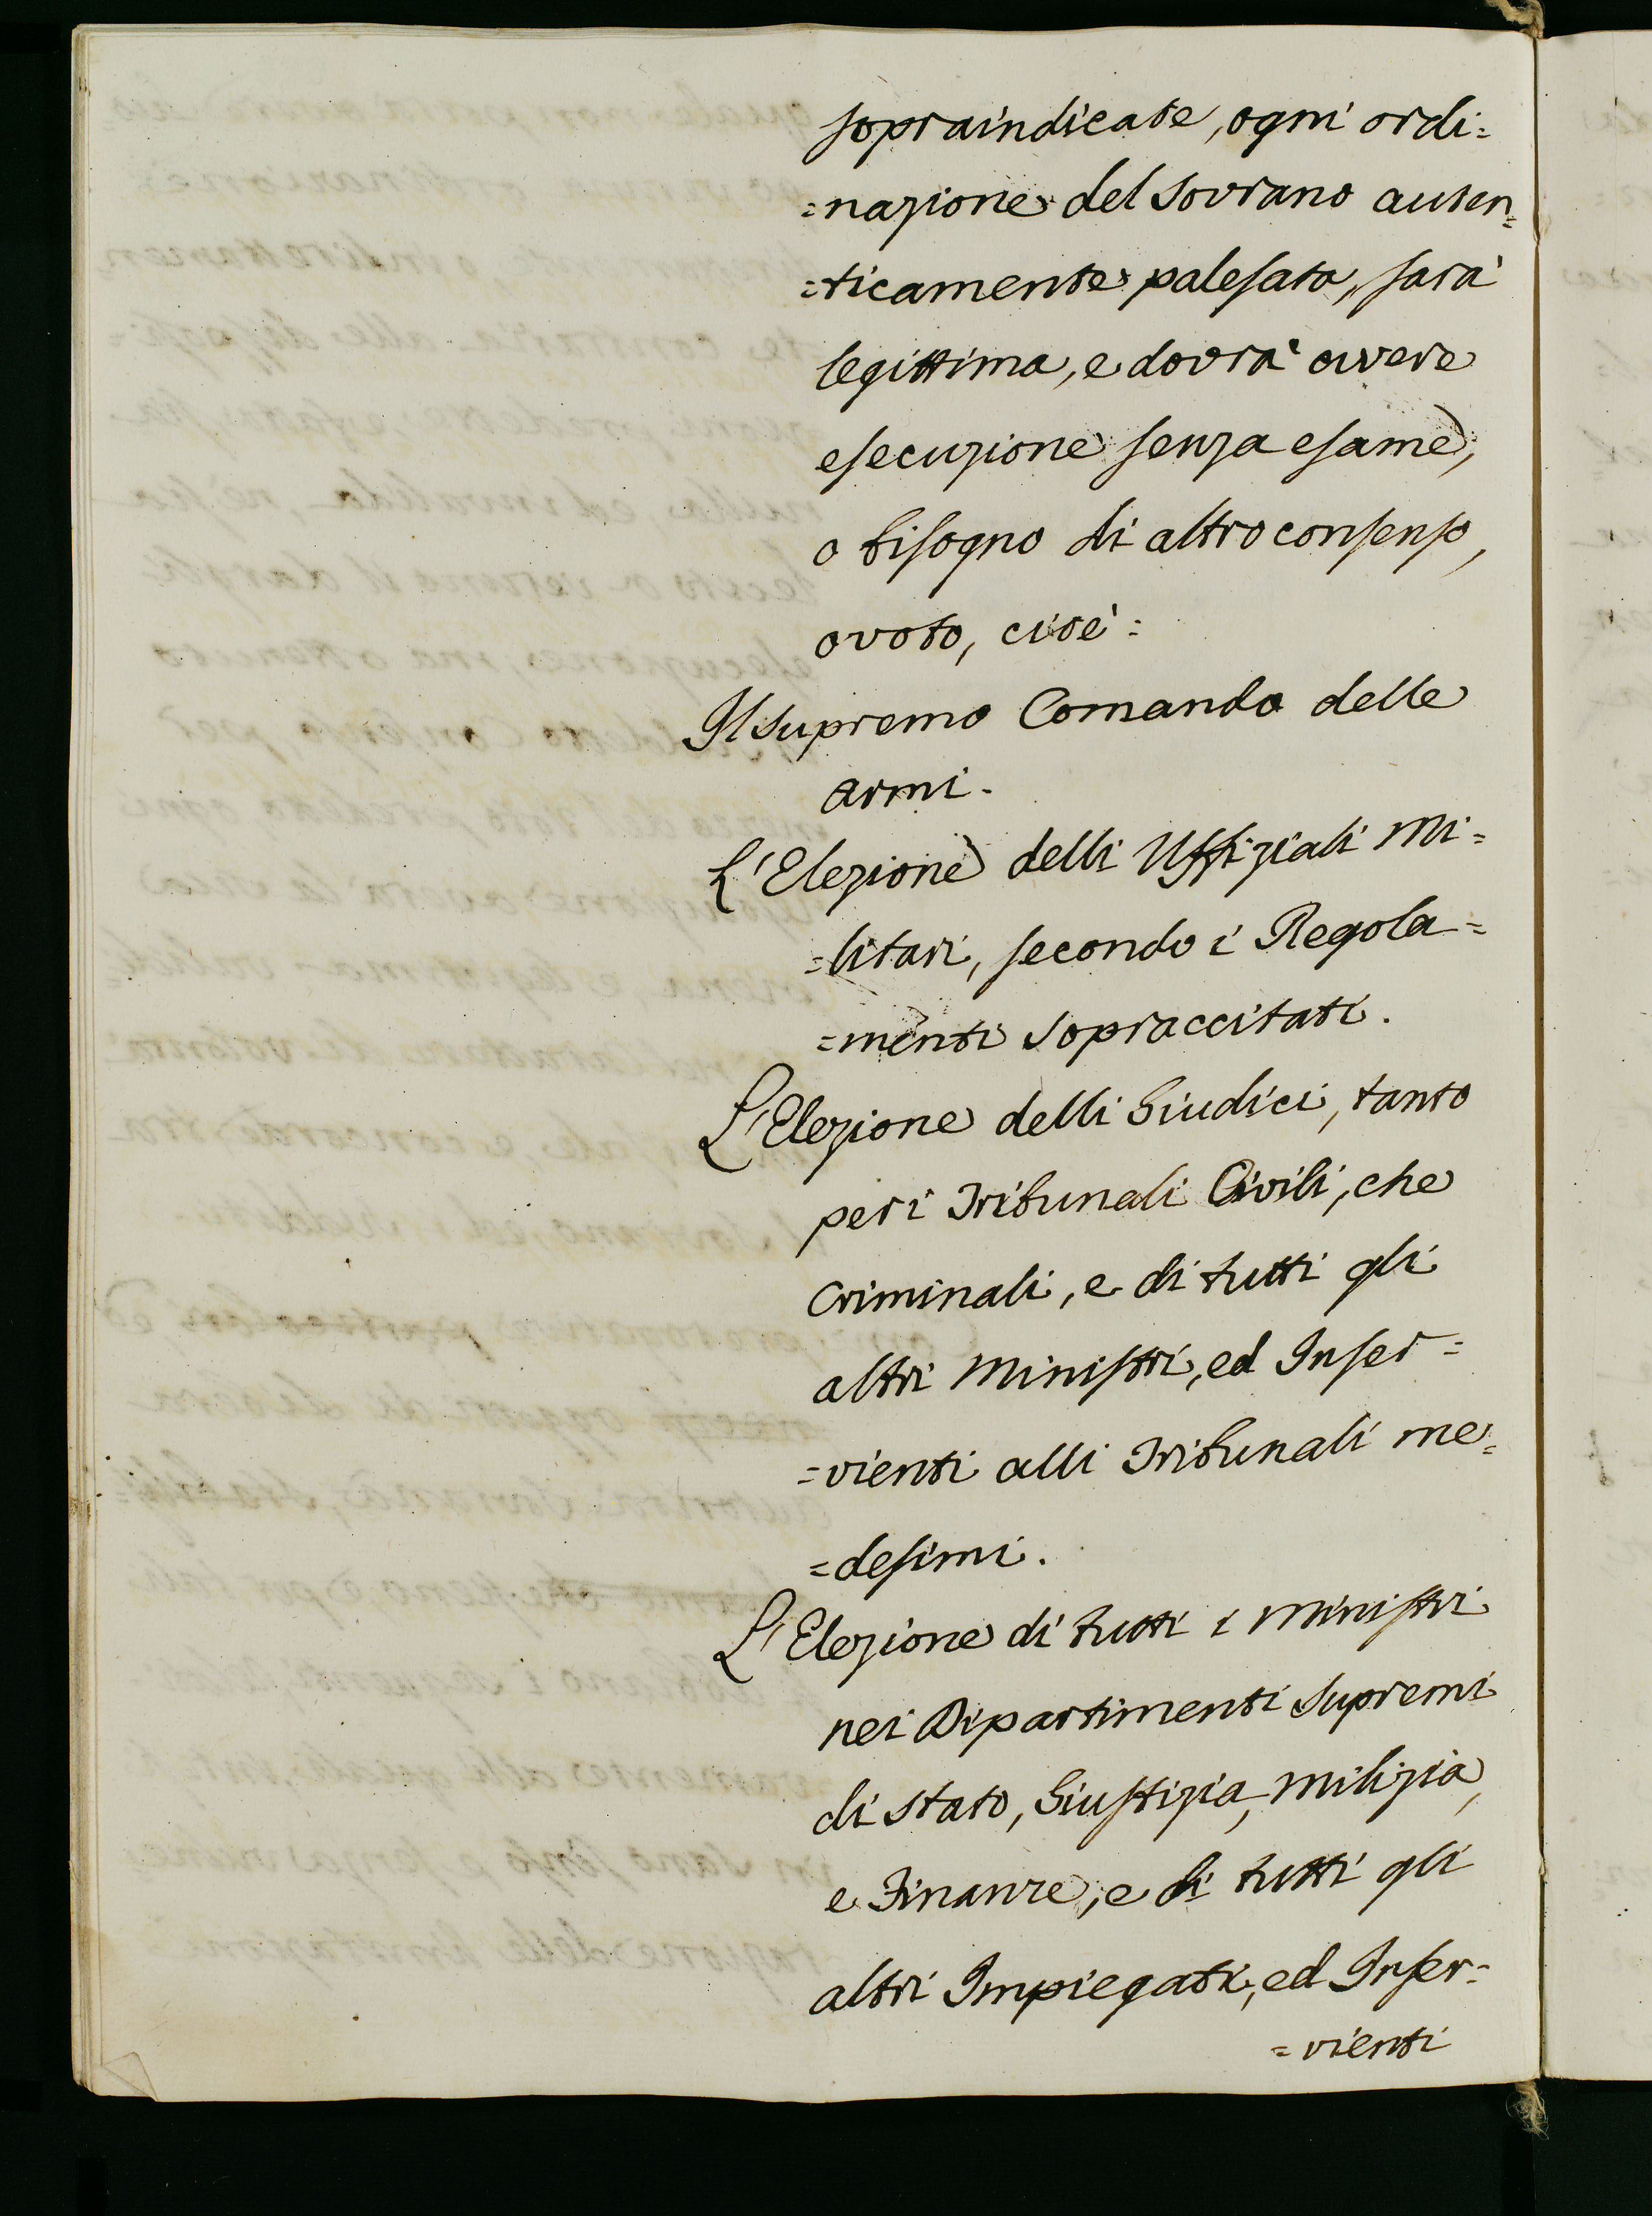 sopraindicate, ogni ordi=
=nazione del Sovrano auten=
=ticamente palesata, sarà
legittima, e dovrà avere
esecuzione senza esame,
o bisogno di altro consenso,
o voto, cioè:
Il supremo Comando delle
armi.
L'Elezione delli Uffiziali Mi=
=litari, secondo i Regola=
=menti sopraccitati.
L'Elezione delli Giudici, tanto
per i Tribunali Civili, che
Criminali, e di tutti gli
altri Ministri, ed Inser=
=vienti alli Tribunali me=
=desimi.
L'Elezione di tutti i Ministri
nei Dipartimenti supremi
di Stato, Giustizia, Milizia,
e Finanze, e di tutti gli
altri Impiegati, ed Inser=
=vienti